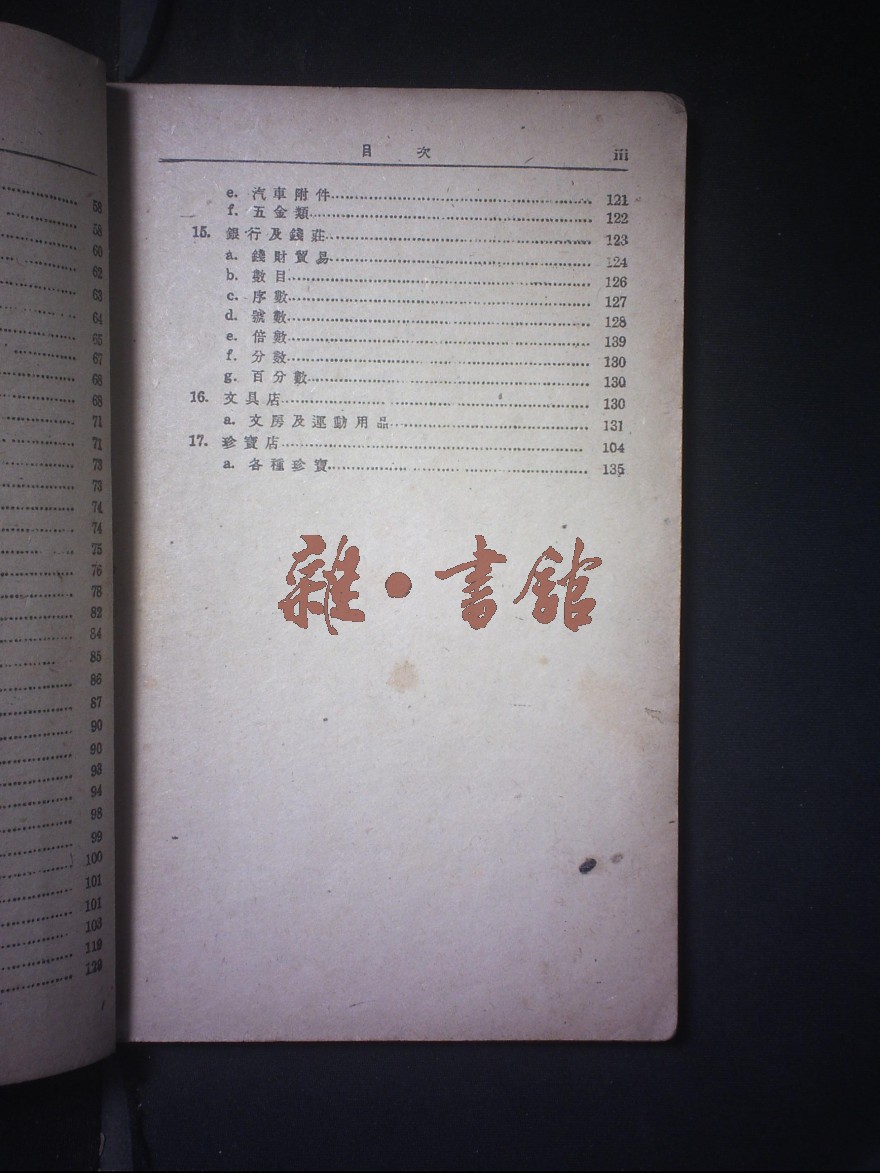 58
58
60
62
63
64
65
67
68
68
71
71
73
73
74
74
75
76
78
82
84
85
86
87
90
90
93
94
98
99
100
101
101
103
119
120
目 次 iii
e. 汽車附件 121
f. 五金類 122
15. 銀行及錢莊 123
a. 錢財貿易 124
b. 數目 126
c. 序數 127
d. 號數 128
e. 倍數 139
f. 分數 130
g. 百分數 130
16. 文具店 130
a. 文房及運動用品 131
17. 珍寶店 104
a. 各種珍寶 135
雜·書館